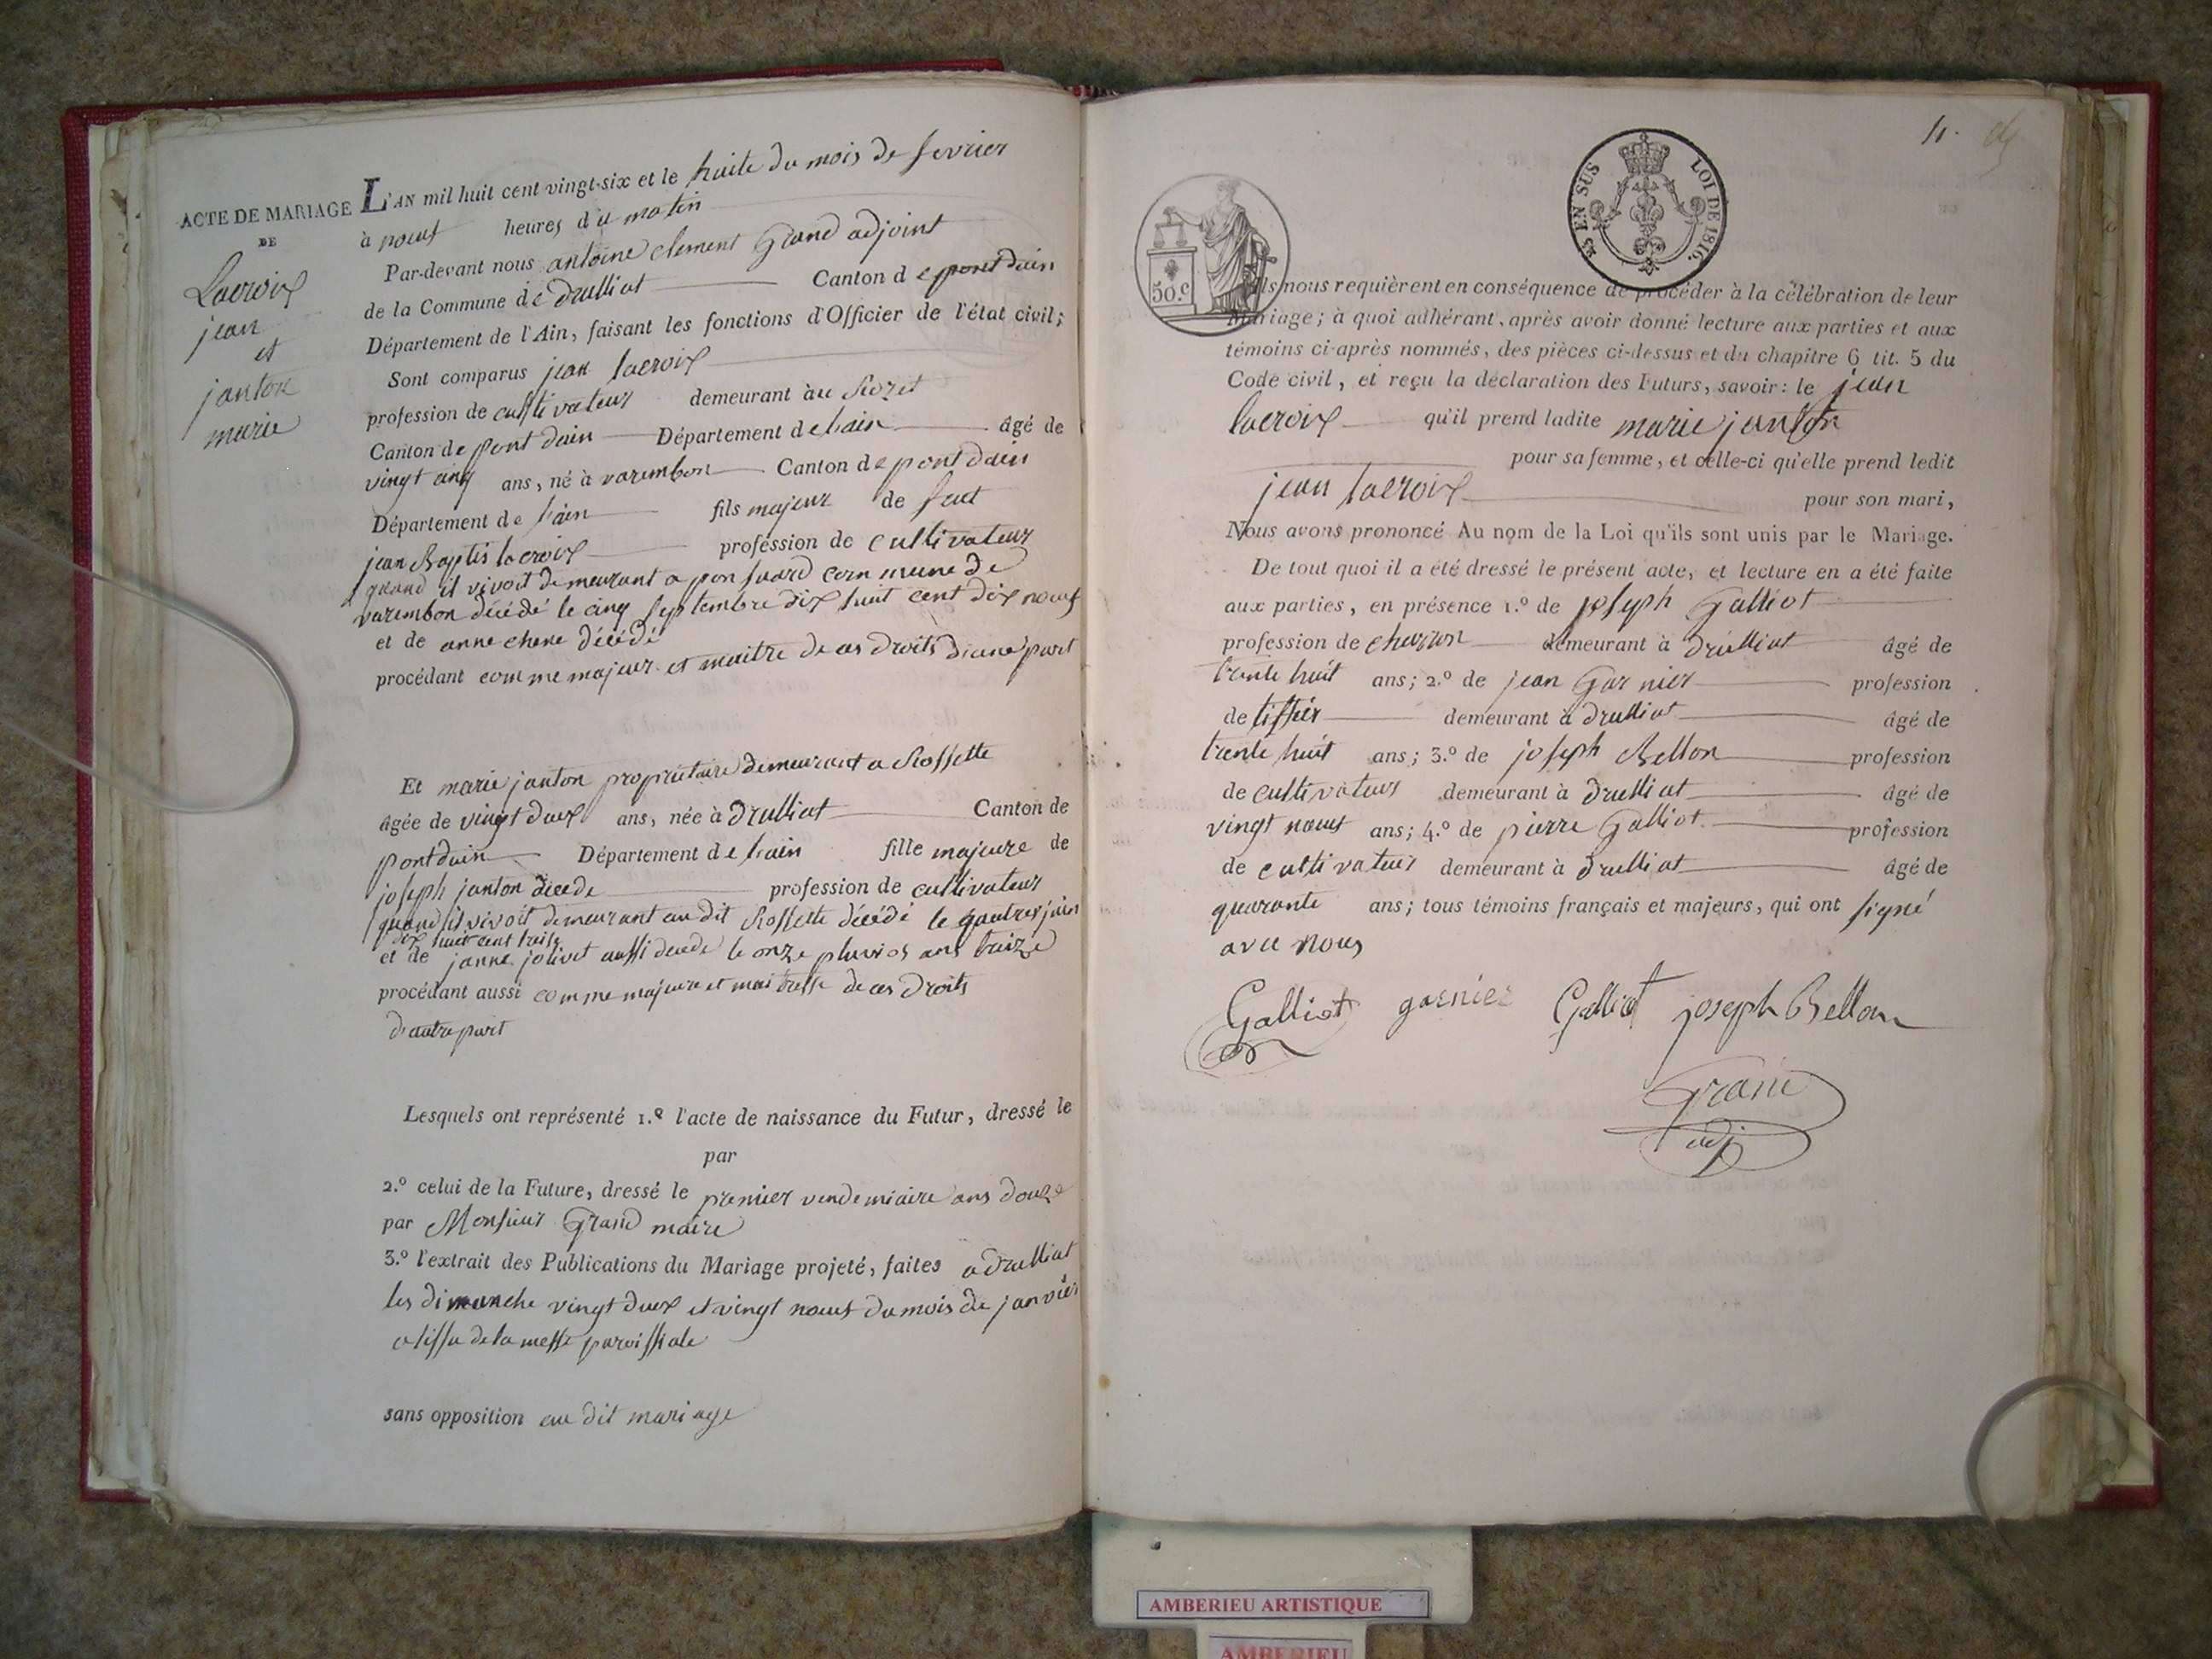 L'AN mil huit cent vingt-six et le huite du mois de fevrier
ACTE DE MARIAGE
DE
Lacroix
jean
et
janton
marie
à neuf heures du matin
Par-devant nous antoine clement Grand adjoint
de la Commune de Drulliat Canton de pont dain
Département de l'Ain, faisant les fonctions d'Officier de l'état civil;
Sont comparus jean lacroix
profession de cultivateur demeurant àu
Canton de pont dain Département de lain âgé de
vingt cinq ans, né à varembon Canton de pont dain
Département de lain fils majeur de feut
jean Baptis lacroix profession de cultivateur
quand il vivoit demeurant a commune de
varembon décédé le cinq septembre dix huit cent dix neuf
et de anne chene décédé
procédant comme majeur et maitre de ces droits d'une part
Et marie janton propriétaire demeurant a Rossette
âgée de vingt duex ans, née à Drulliat Canton de
pontdain Département de lain fille majeure de
joseph janton decede profession de cultivateur
quand il vivoit demeurant au dit Rossette décédé le quatres juin
dix huit cent treise
et de janne jolivet aussi decede le onze pluvios ans traize
procédant aussi comme majeure et maitresse de ces Droits
d'autre part
Lesquels ont représenté 1.º l'acte de naissance du Futur, dressé le
par
2.º celui de la Future, dressé le premier vendemiaire ans douze
par Monsieur Grand maire
3.º l'extrait des Publications du Mariage projeté, faites a Drulliat
les dimanche vingt duex et vingt neuf du mois de janvier
a lissu de la messe paroissiale
sans opposition au dit mariage
11.
EN SUS LOI DE 1816.
50.c
Ils nous requièrent en conséquence de procéder à la célébration de leur
Mariage; à quoi adhérant, après avoir donné lecture aux parties et aux
témoins ci-après nommés, des pièces ci-dessus et du chapitre 6 tit. 5 du
Code civil, et reçu la déclaration des Futurs, savoir: le jean
lacroix qu'il prend ladite marie janton
pour sa femme, et celle-ci qu'elle prend ledit
jean lacroix pour son mari,
Nous avons prononcé Au nom de la Loi qu'ils sont unis par le Mariage.
De tout quoi il a été dressé le présent acte, et lecture en a été faite
aux parties, en présence 1.º de joseph Galliot
profession de demeurant à Drulliat âgé de
trente huit ans; 2.º de jean Garnier profession
de tissier demeurant à Drulliat âgé de
trente huit ans; 3.º de joseph Bellon profession
de cultivateur demeurant à Drulliat âgé de
vingt neuf ans; 4.º de pierre Galliot profession
de cultivateur demeurant à Drulliat âgé de
quarante ans; tous témoins français et majeurs, qui ont signé
avec nous
Galliot garnier Galliot joseph Bellon
Grand
adj
AMBERIEU ARTISTIQUE
AMBERIEU